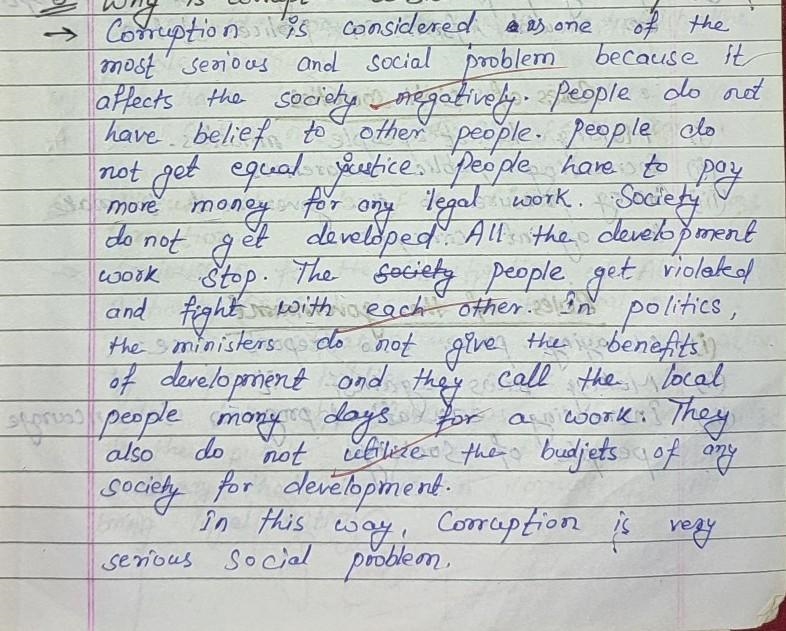 Why is
→ Corruption is considered as one of the
most serious and social problem because it
affects the society negatively. People do not
have belief to other people. People do
not get equal justice. People have to pay
more money for any legal work. Society
do not get developed. All the development
work stop. The society people get violated
and fight with each other. In politics,
the ministers do not give the benefits
of development and they call the local
people many days for a work. They
also do not utilize the budjets of any
society for development.
In this way, Corruption is very
serious Social problem.